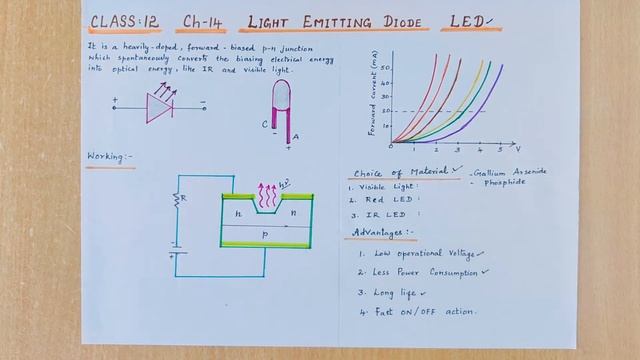 CLASS:12 Ch-14 LIGHT EMITTING DIODE LED
It is a heavily-doped, forward-biased p-n junction
which spontaneously converts the biasing electrical energy
into optical energy, like IR and visible light.
+ -
C A
- +
Working:-
R
- +
hν
n n
p
Forward current (mA)
50
40
30
20
10
0 1 2 3 4 5 V
Choice of Material
- Gallium Arsenide
- Phosphide
1. Visible Light:
2. Red LED :
3. IR LED :
Advantages:-
1. Low operational Voltage
2. Less Power Consumption
3. Long life
4. Fast ON/OFF action.